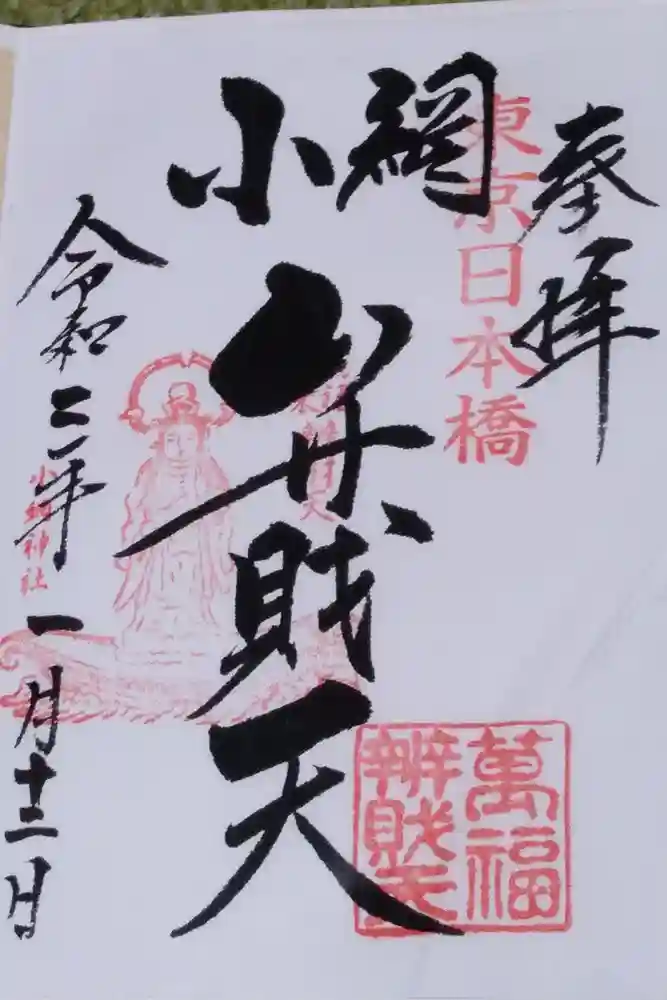 奉拝
東京日本橋
小網
弁財天
萬福
辨財天
令和二年一月十二日
小網神社